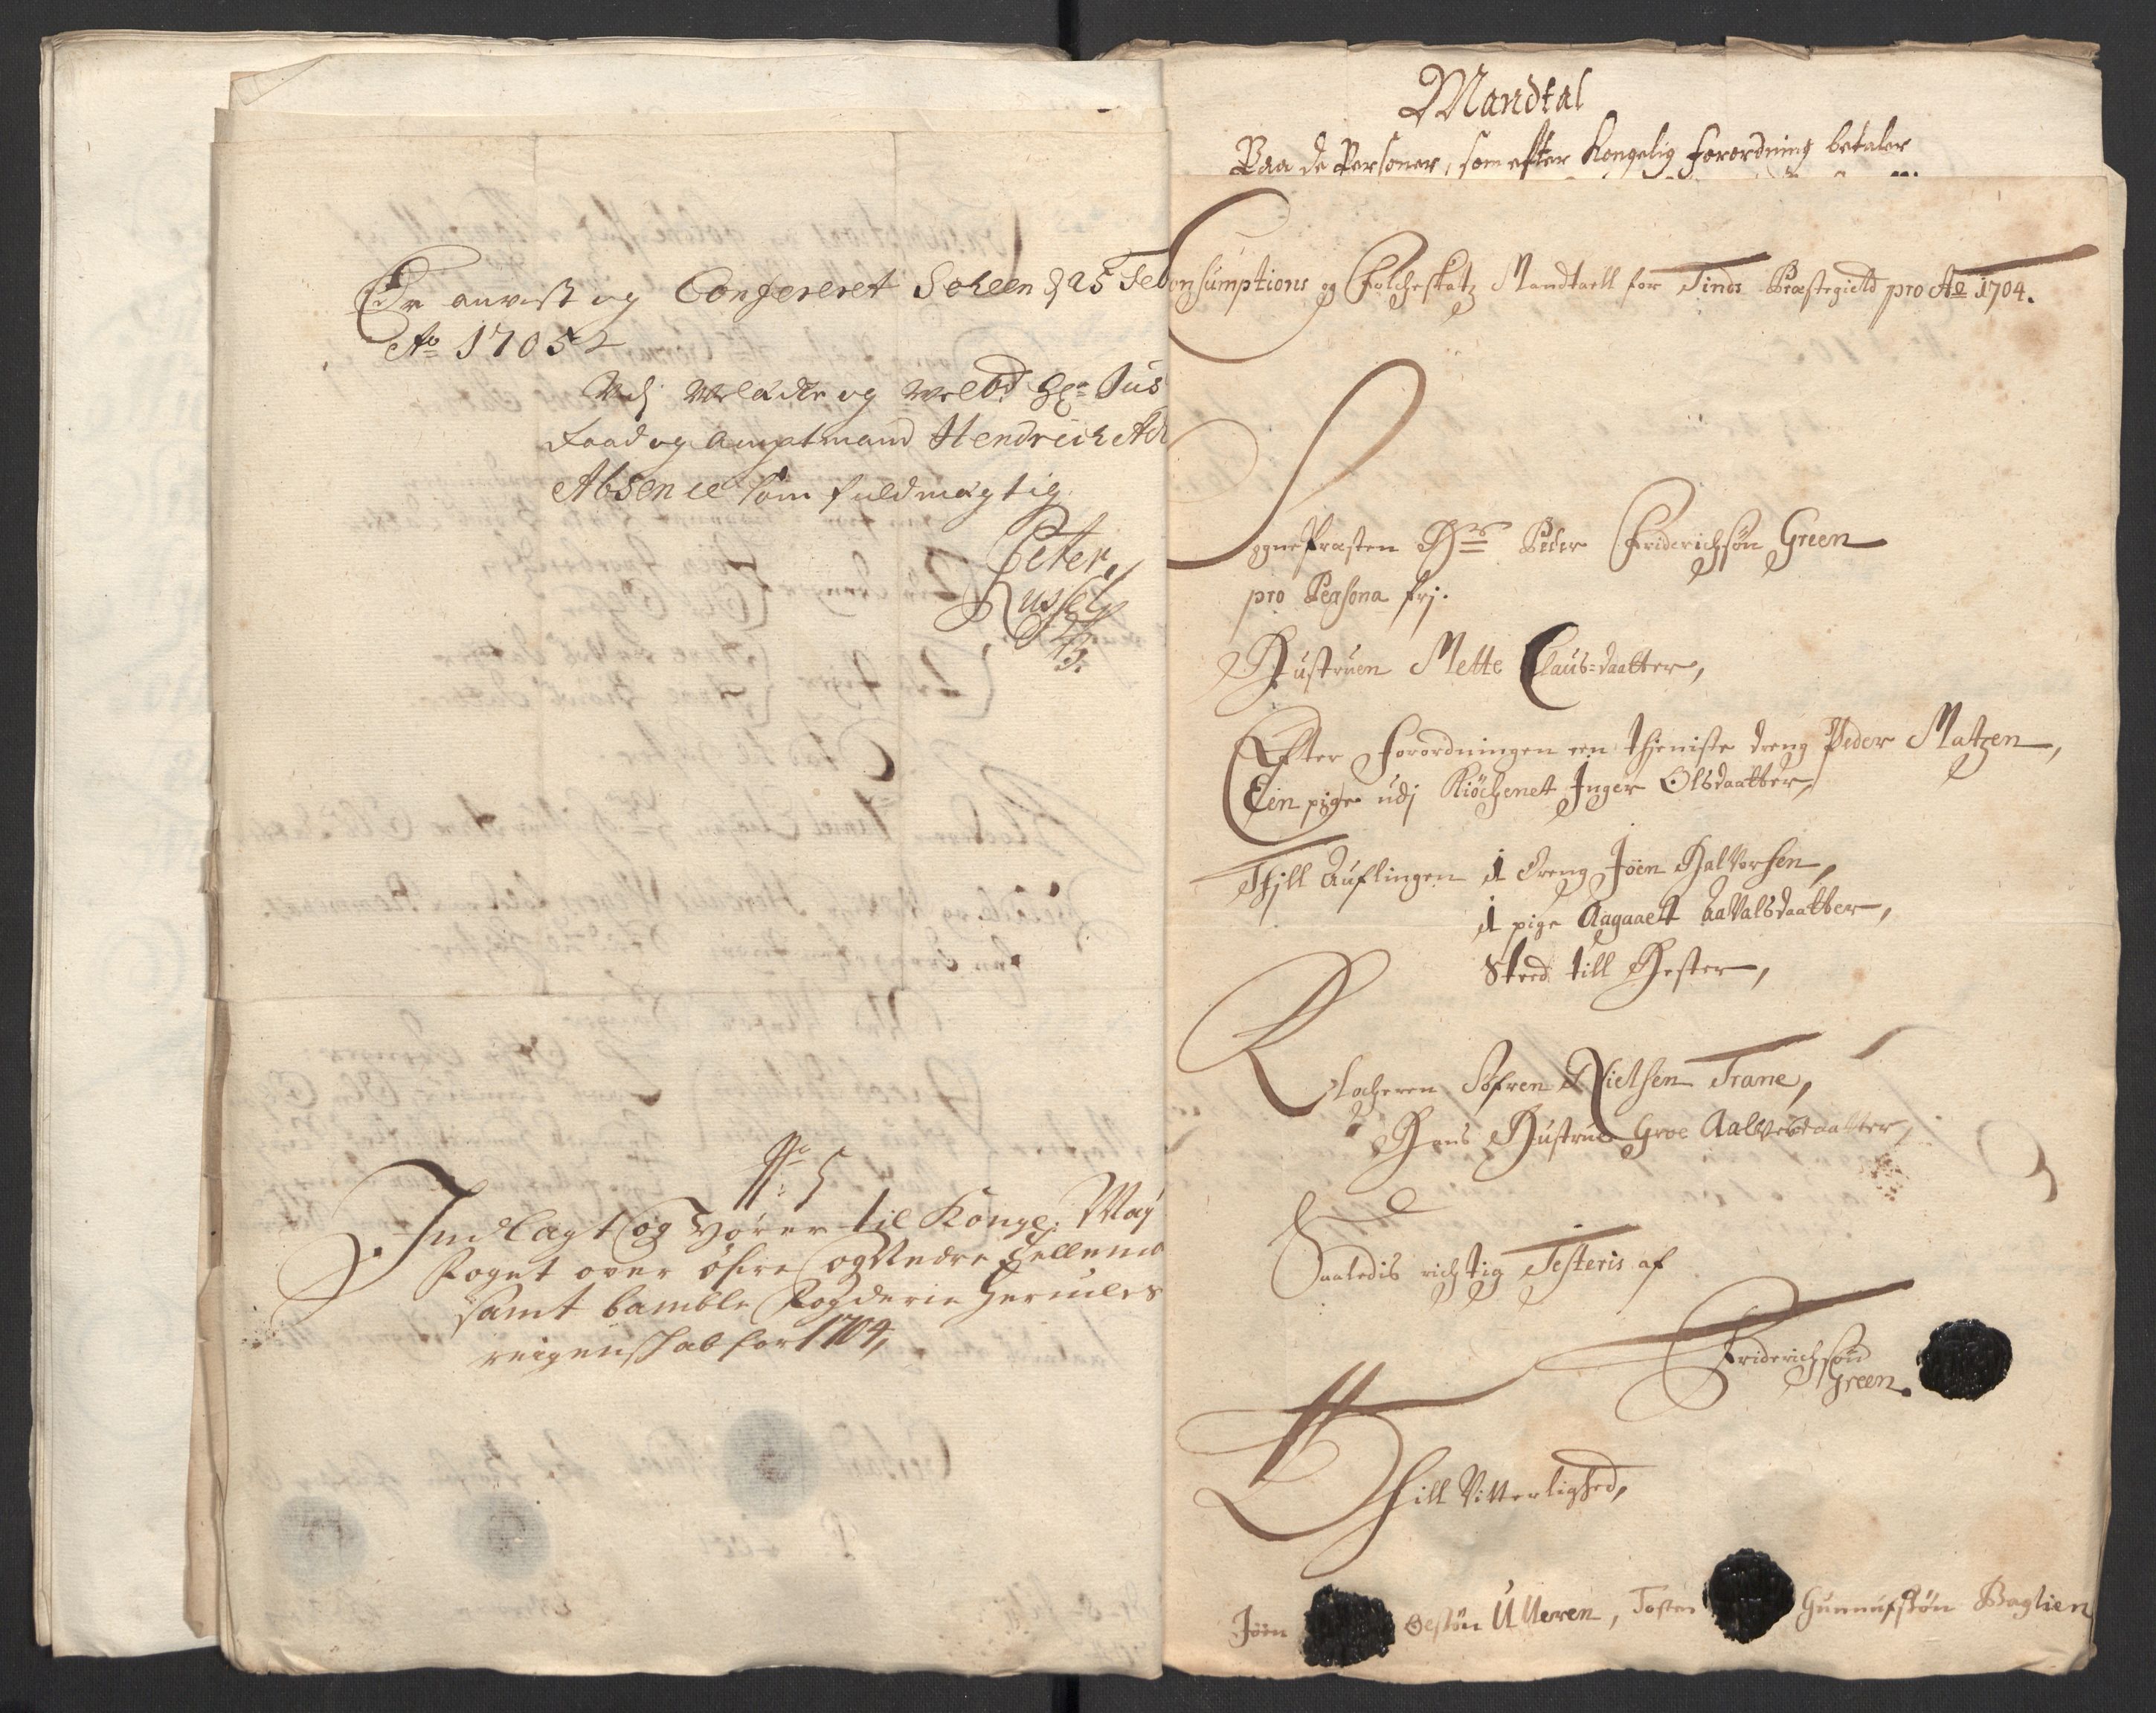 Er anvist og Confereret Scheen d 25 Feb
Ao 1705
Udj Velædle og Velbd Hr. Jus
Raad og Amptmand Hendrich Ad
Absence som fuldmægtig
Peter
Russel
No 5
Indlagt og hører til Kongl. May
Foget over øfre og Nedre Tellema
samt bamble Fogderie Hermens
reigenskab for 1704,
Mandtal
Paa de Personer, som efter Kongelig forordning betaler
Consumptions og Folcheskatz Mandtaell for Tinds Præstegield pro Ao 1704.
SognePræsten Hr Peder Friderichsøn Green
pro Persona frj.
Hustruen Mette Clausdaatter,
Efter forordningen een thieniste dreng Peder Matzen,
Een pige udj Kiøchenet Inger Olsdaatter,
Thill Auflingen 1 dreng Joen Halvorsen,
1 pige Aagaaet AaValsdaatter,
Sted till Hester,
Klocheren Søfren Nielsen Trane,
Hans Hustrue Groe Aalvesdaatter,
Saaledis richtig Testeris af
Friderichsøn
Green.
Thill Vitterlighed,
Joen Oesøn Ulleren, Tosten Gunnufsøn Baglien